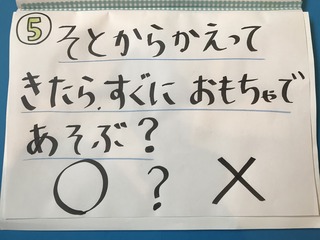 ⑤ そとからかえって
きたら、すぐに おもちゃで
あそぶ?
○ ? ×